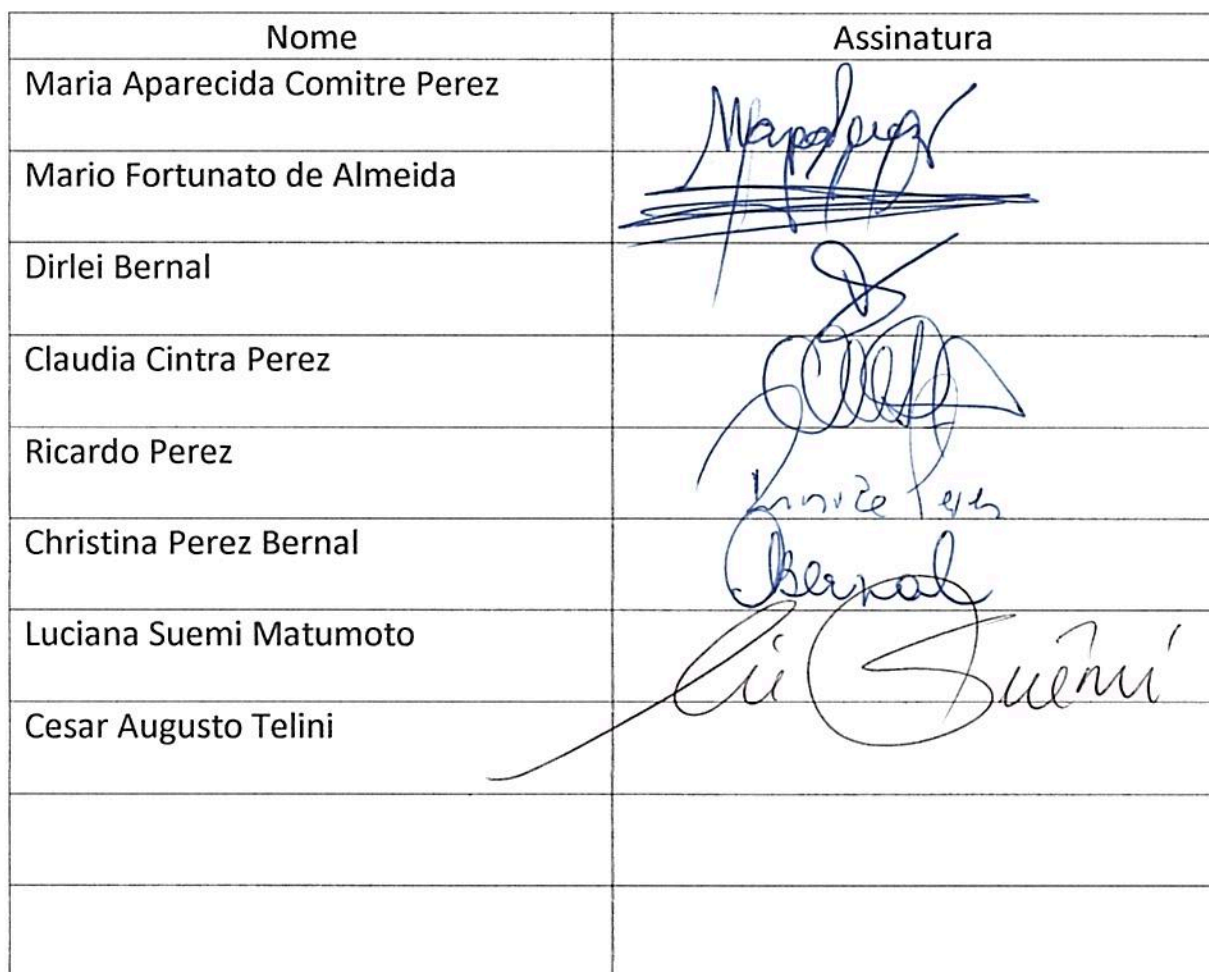 Nome Assinatura
Maria Aparecida Comitre Perez
Mario Fortunato de Almeida
Dirlei Bernal
Claudia Cintra Perez
Ricardo Perez
Christina Perez Bernal CBernal
Luciana Suemi Matumoto Lu Suêmi
Cesar Augusto Telini